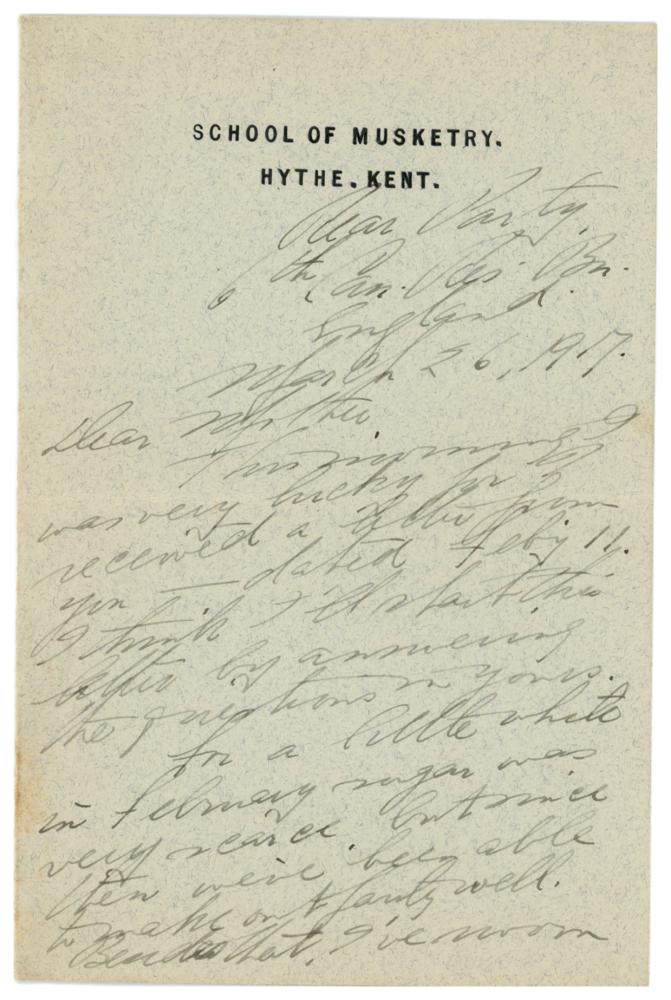 SCHOOL OF MUSKETRY.
HYTHE. KENT.
Rear Party,
6th Can. Res. Bn.
England.
March 26, 1917.
Dear Mother
This morning I
was very lucky for I
received a letter from
you — dated Feby 11.
I think I'll start this
letter by answering
the questions in yours.
For a little while
in February sugar was
very scarce but since
then we've been able
to make out fairly well.
Besides that, I've